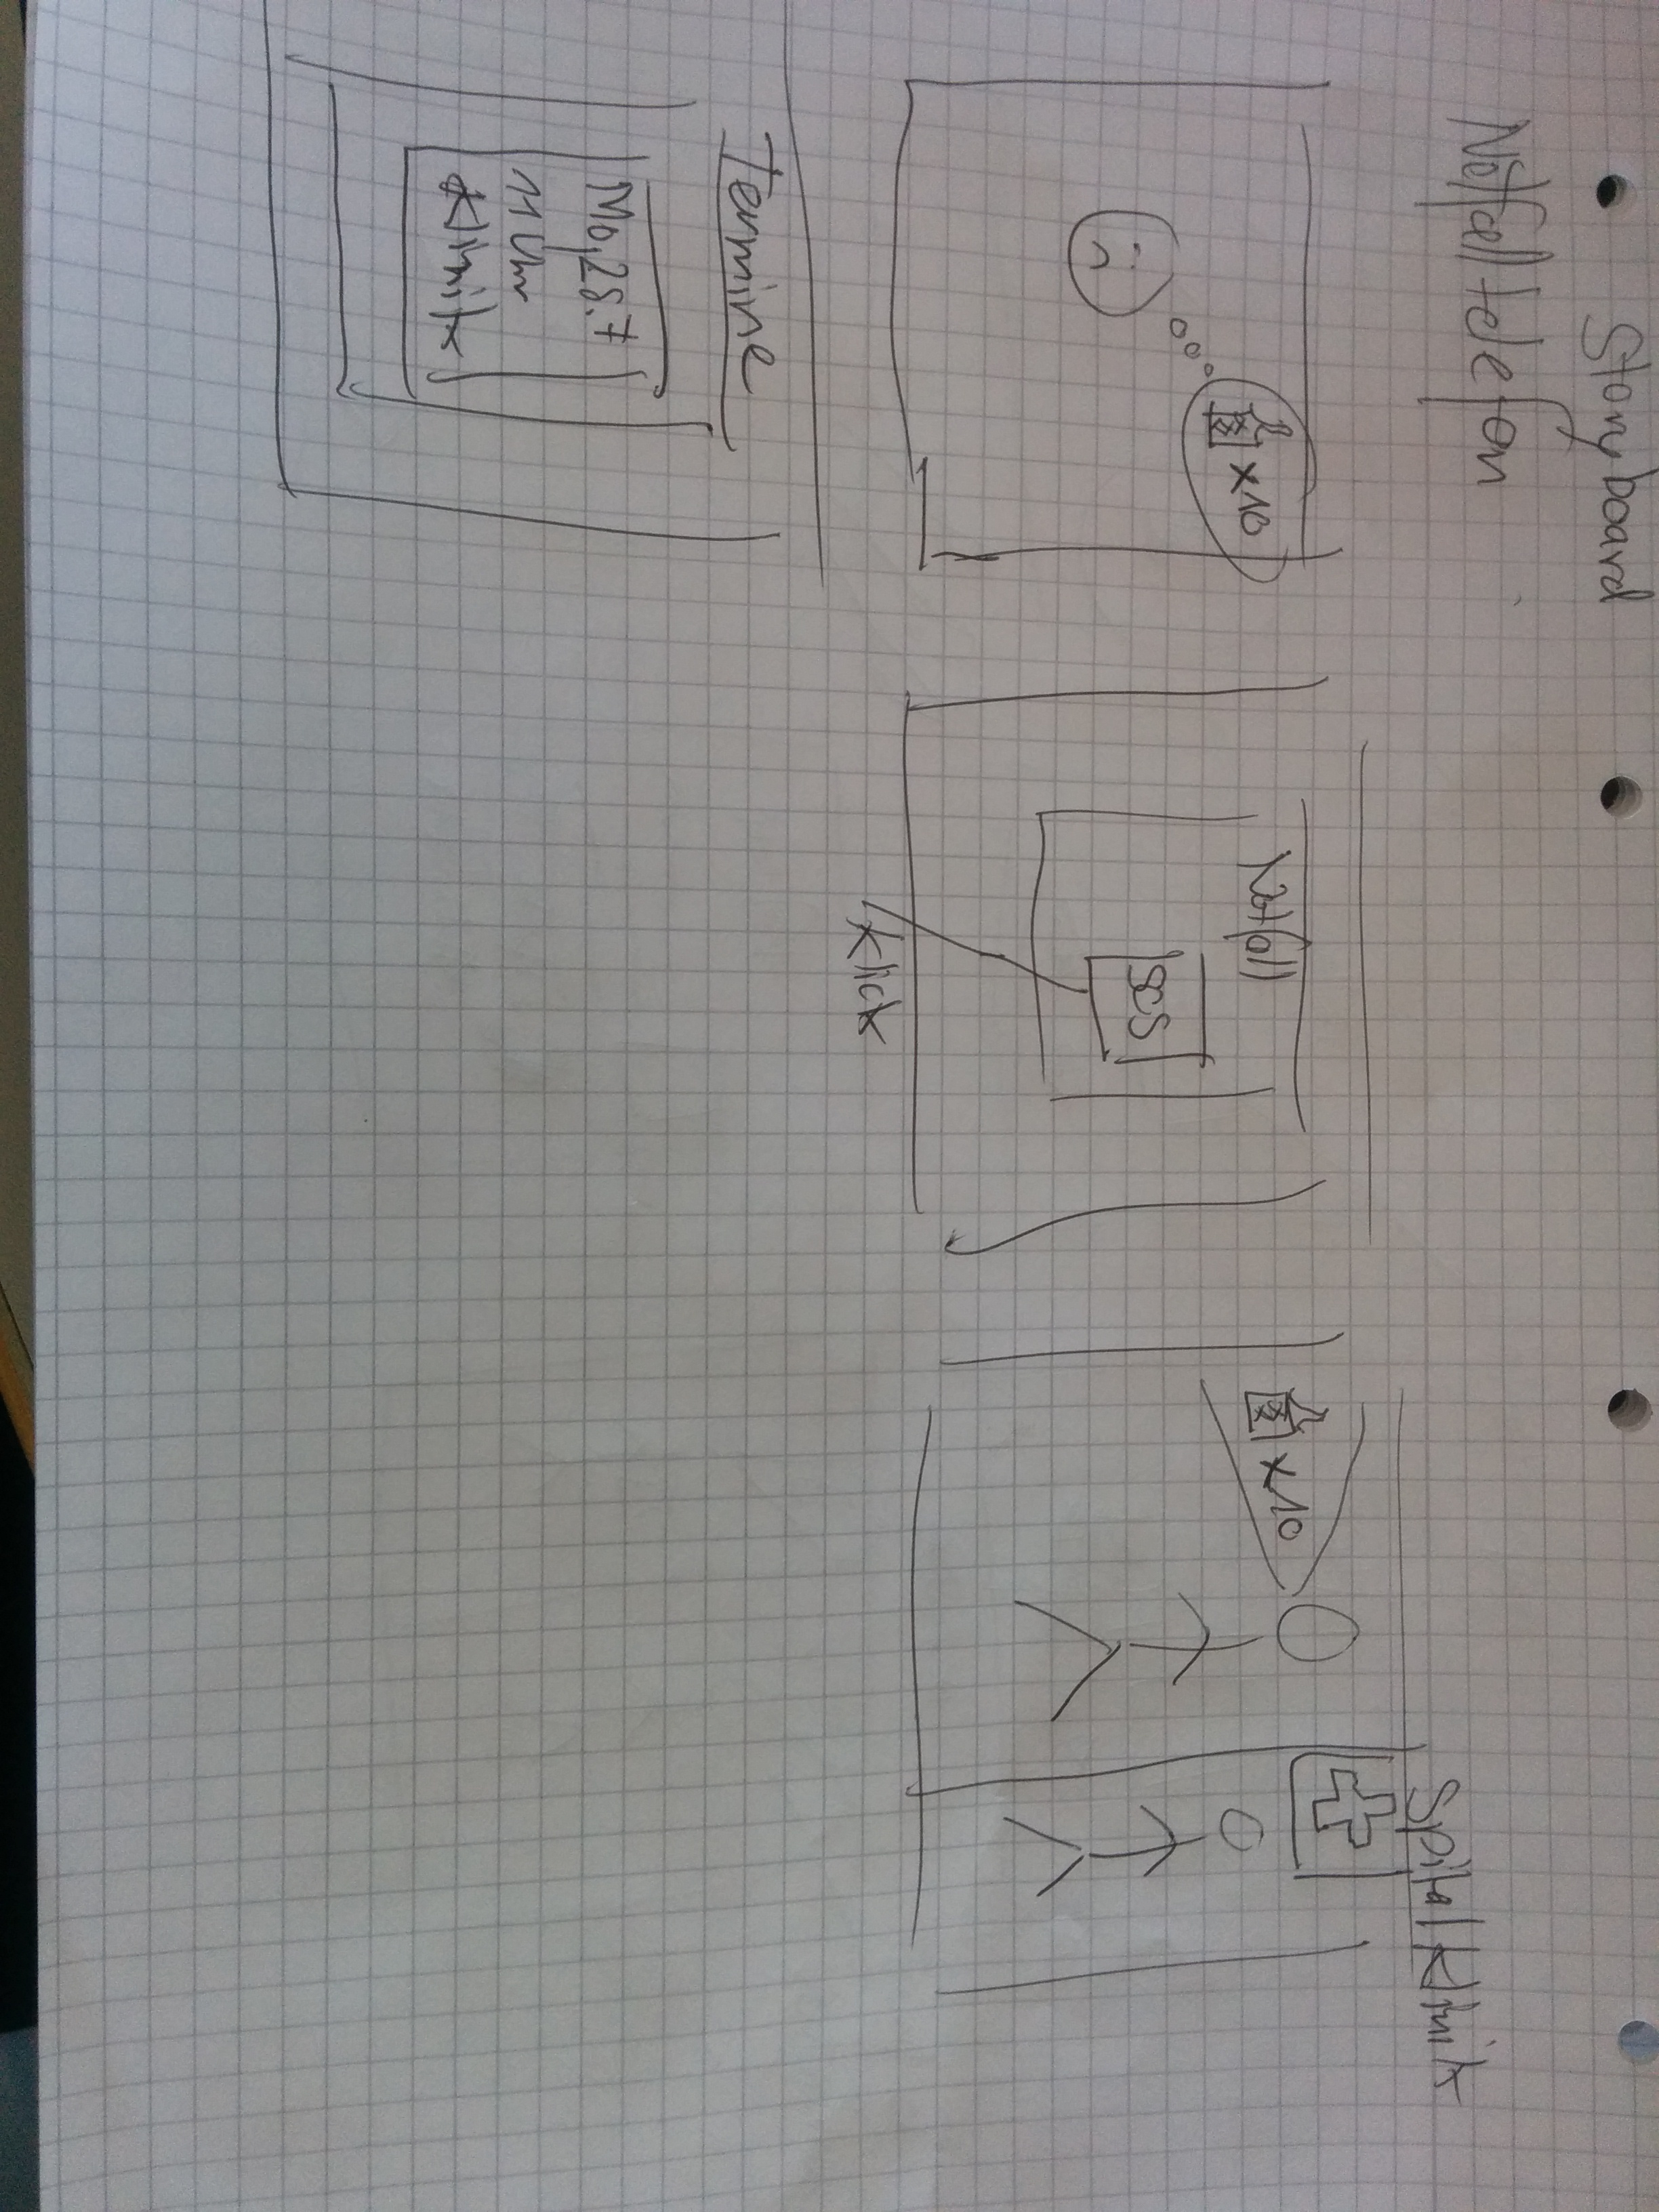 Storyboard
Notfalltelefon
x10
Notfall
SOS
Klick
x10
Spital Klinik
Termine
Mo, 28.7
11 Uhr
Klinik